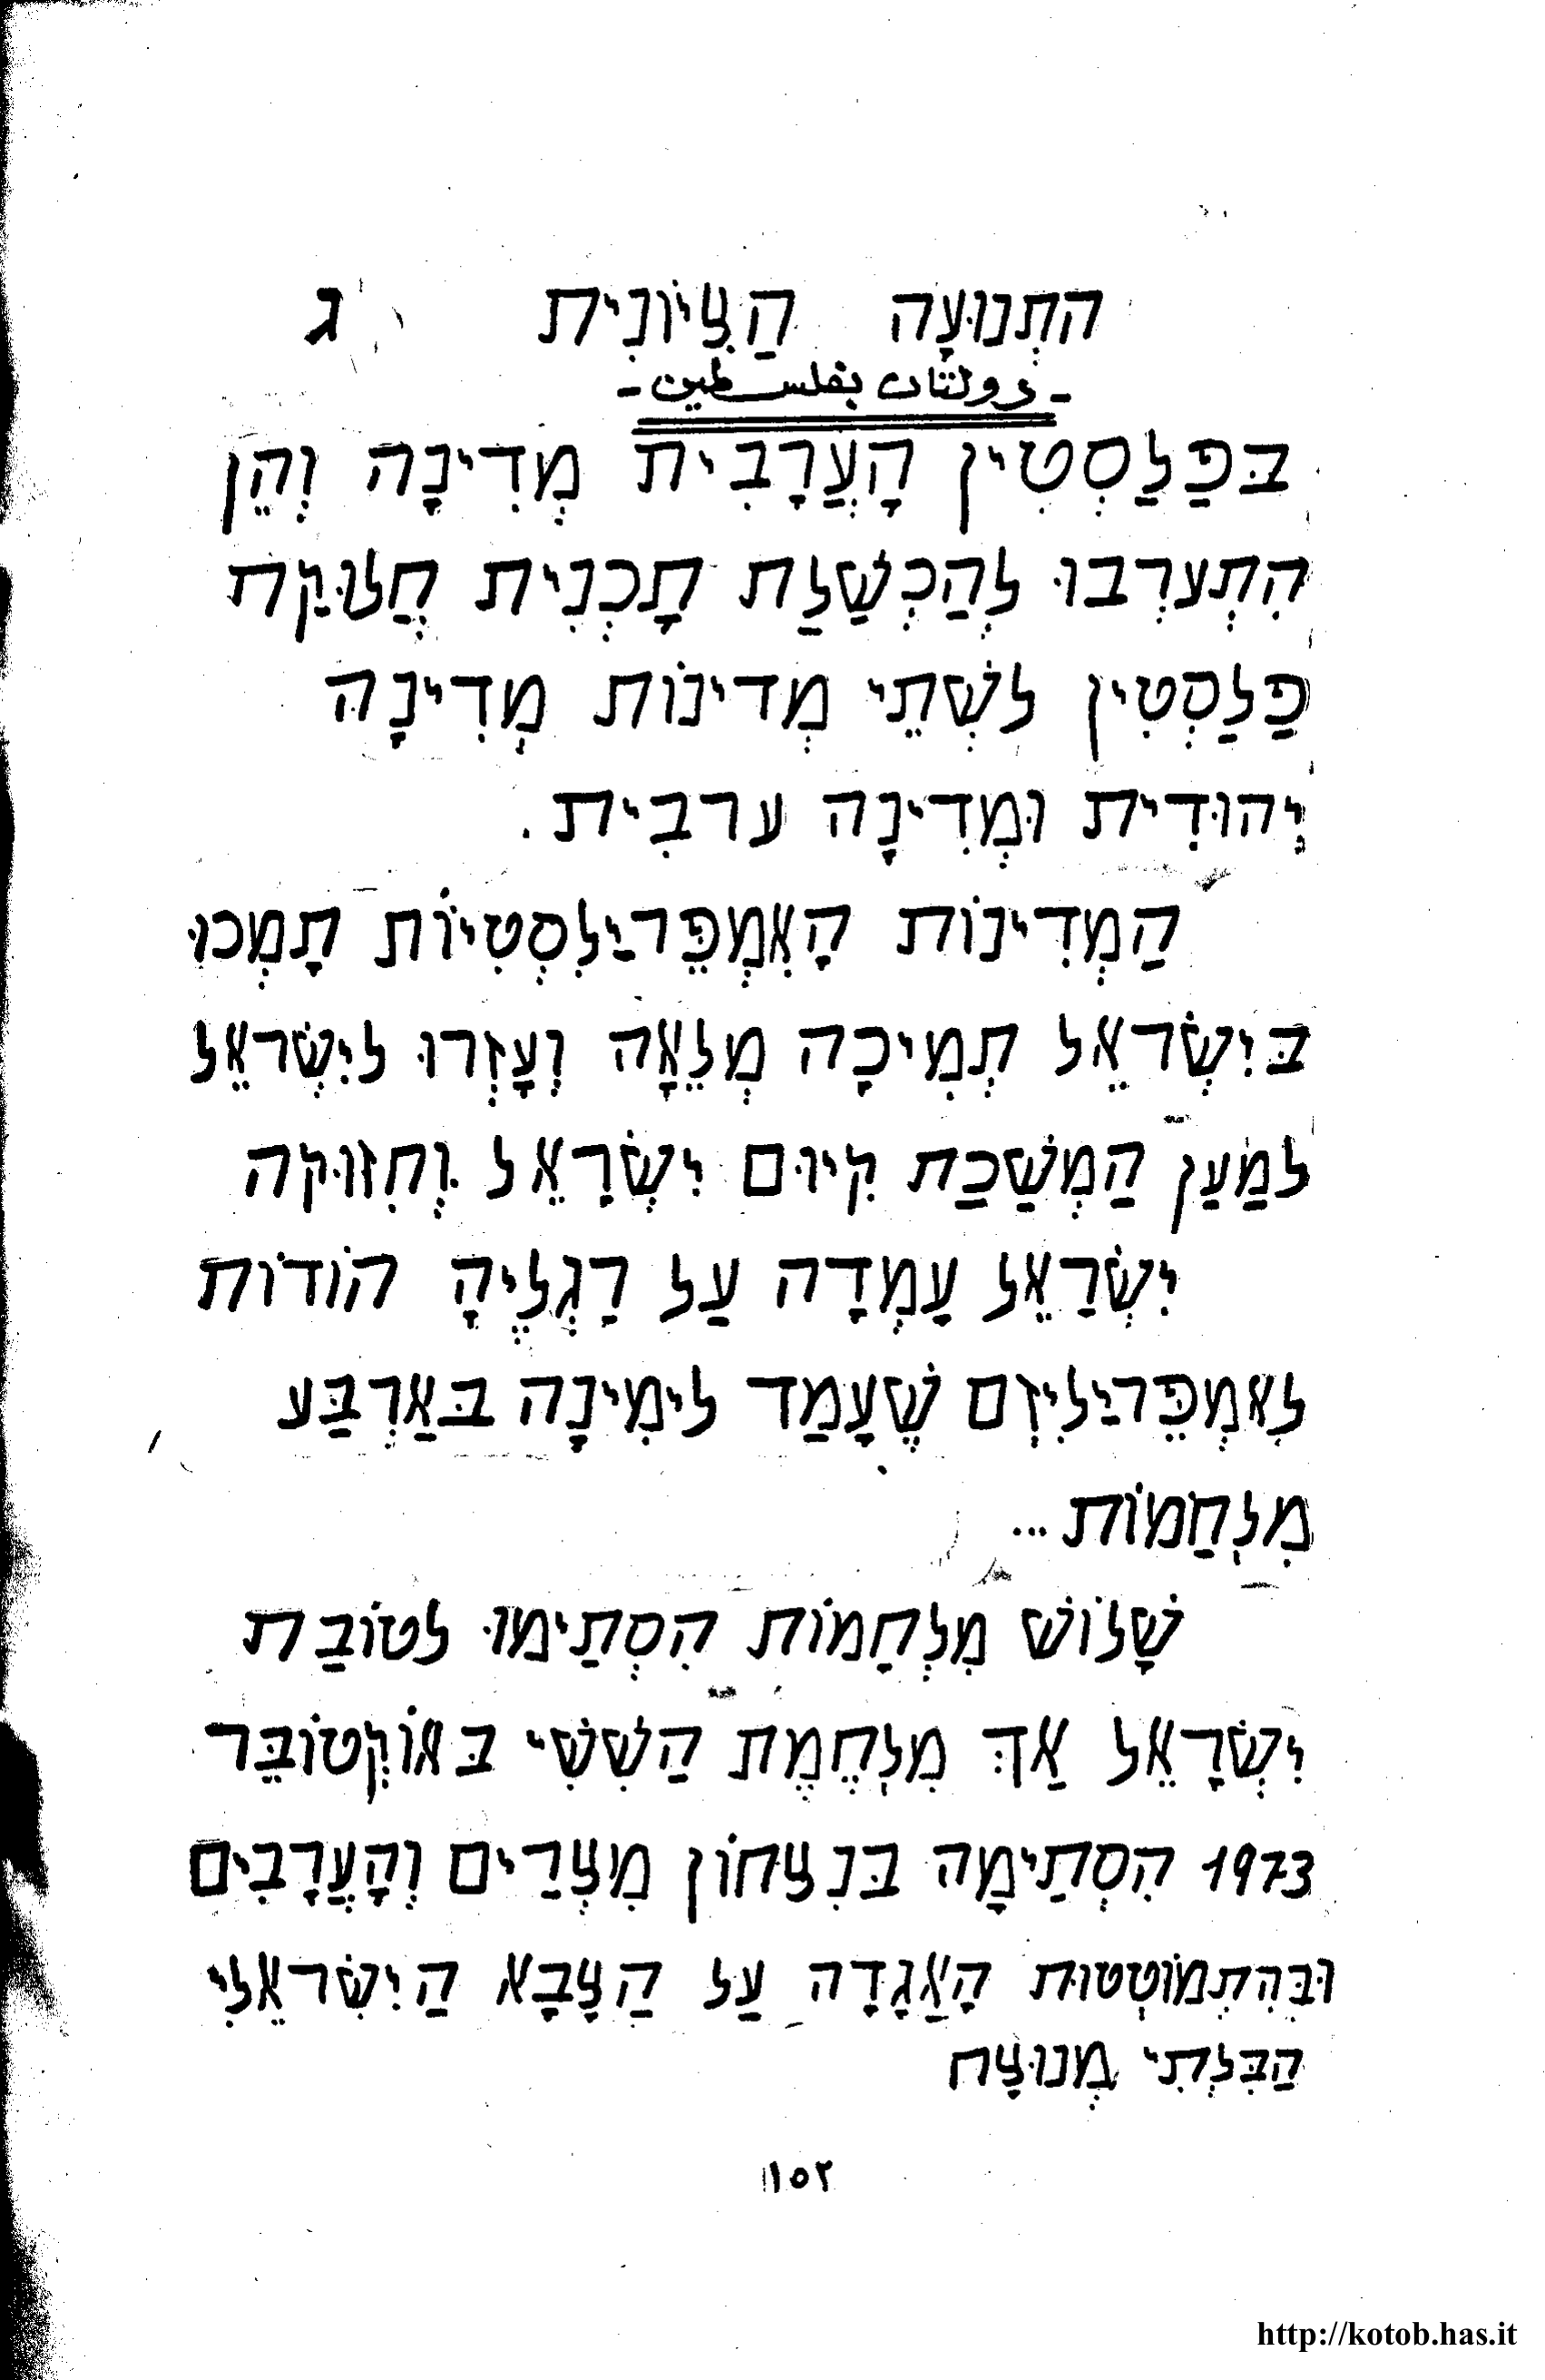 התְנוּעָה הַצִיוֹנִית ג
- دولتان بفلسطين -
בּפַלַסְטִין הָעֲרָבִית מְדִינָה וְהֵן
הִתְערְבוּ לְהַכְשָׁלַת תָכְנִית חֲלוּקַת
פַלַסְטִין לשְׁתֵי מְדינוֹת מְדִינָה
יְהוּדִית וּמְדִינָה ערבִית .
הַמְדִינוֹת הָאִמְפֶּריַלִסְטִיוֹת תָמְכוּ
בּיִשְׂראֵל תְמִיכָה מְלֵאָה וְעָזְרוּ ליִשְׂראֵל
למַעַן הַמְשָׁכַת קִיוּם יִשְׂרָאֵל וְחִזוּקה
יִשְׂרַאֵל עָמְדָה עַל רַגְלֶיהָ הוֹדוֹת
לאִמְפֶּריַלִיזְם שֶׁעָמַד לימִינָה בּאַרְבַּע
מִלְחַמוֹת...
שָׁלוֹשׁ מִלְחַמוֹת הִסְתַימוּ לטוֹבַת
יִשְׂרָאֵל אַךְ מִלְחֶמֶת הַשִׁשִׁי בּאוֹקְטוֹבֵּר
1973 הִסְתַימָה בּנִצחוֹן מִצְרַים וְהָעֲרָבִים
וּבְּהִתְמוֹטְטוּת הָאַגָדָה עַל הַצָבָא הַיִשׂראֵלִי
הַבִּלְתִי מְנוּצָח
١٥٢
http://kotob.has.it